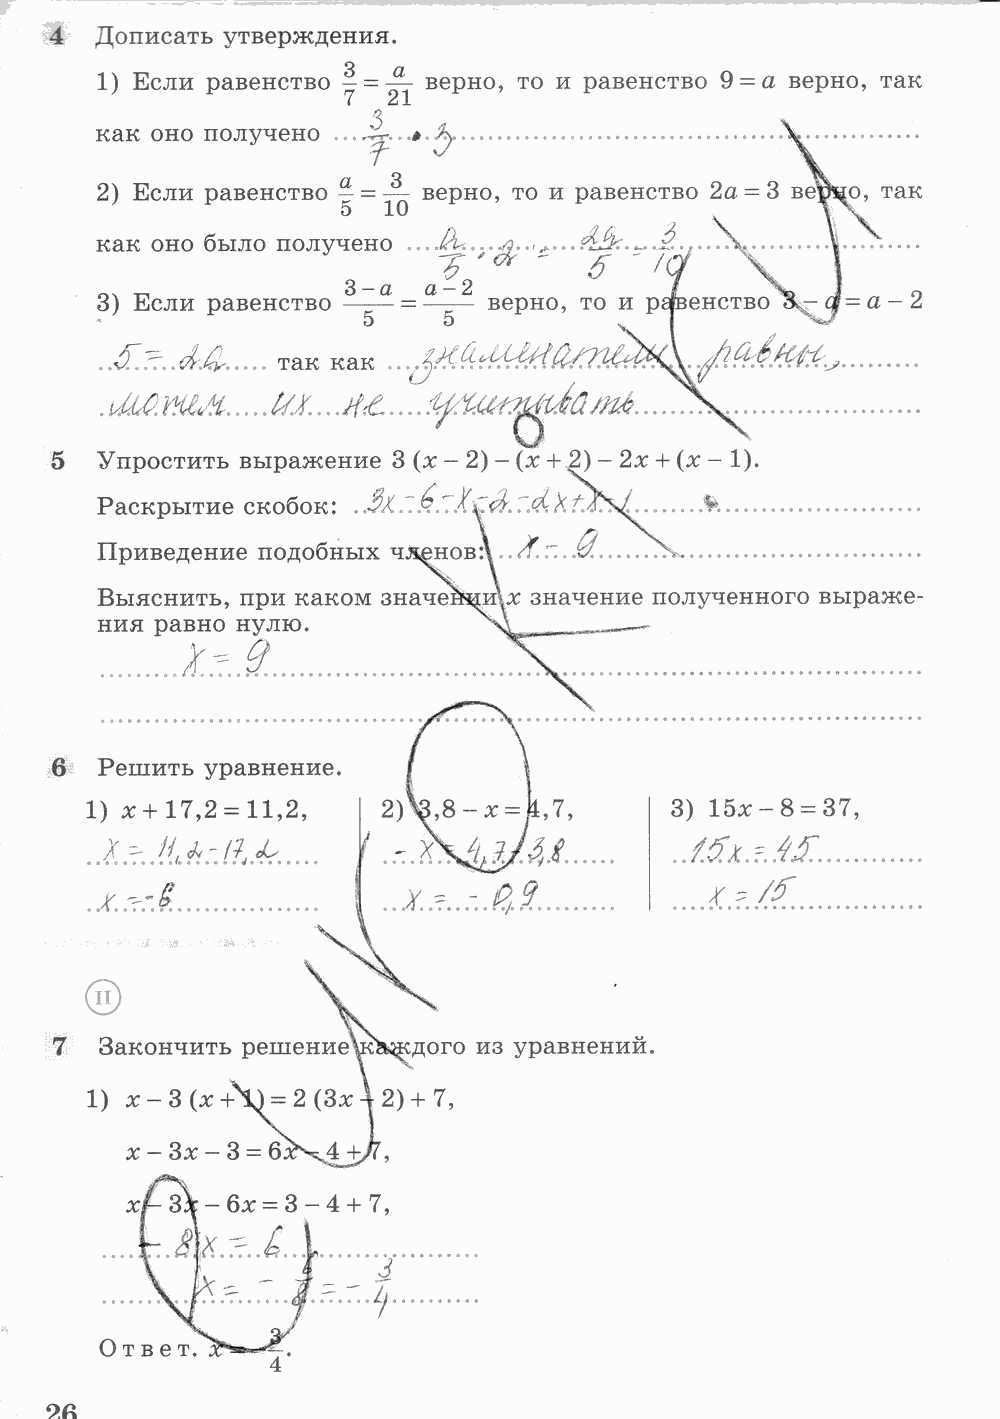 4 Дописать утверждения.
1) Если равенство 3/7 = a/21 верно, то и равенство 9 = a верно, так
как оно получено 3/7 · 3
2) Если равенство a/5 = 3/10 верно, то и равенство 2a = 3 верно, так
как оно было получено a/5 · 2 = 2a/5 = 3/10
3) Если равенство (3 − a)/5 = (a − 2)/5 верно, то и равенство 3 − a = a − 2
5 = 2a так как знаменатели равны,
можем их не учитывать
5 Упростить выражение 3 (x − 2) − (x + 2) − 2x + (x − 1).
Раскрытие скобок: 3x − 6 − x − 2 − 2x + x − 1
Приведение подобных членов: x − 9
Выяснить, при каком значении x значение полученного выраже-
ния равно нулю.
x = 9
6 Решить уравнение.
1) x + 17,2 = 11,2, 2) 3,8 − x = 4,7, 3) 15x − 8 = 37,
x = 11,2 − 17,2 − x = 4,7 − 3,8 15x = 45
x = −6 x = − 0,9 x = 15
II
7 Закончить решение каждого из уравнений.
1) x − 3 (x + 1) = 2 (3x − 2) + 7,
x − 3x − 3 = 6x − 4 + 7,
x − 3x − 6x = 3 − 4 + 7,
− 8x = 6
x = − 6/8 = − 3/4
Ответ. x = − 3/4.
26